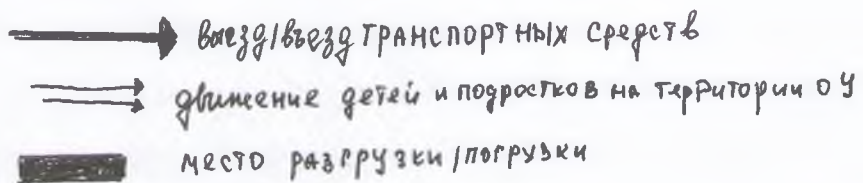 выезд/въезд транспортных средств
движение детей и подростков на территории ОУ
место разгрузки/погрузки